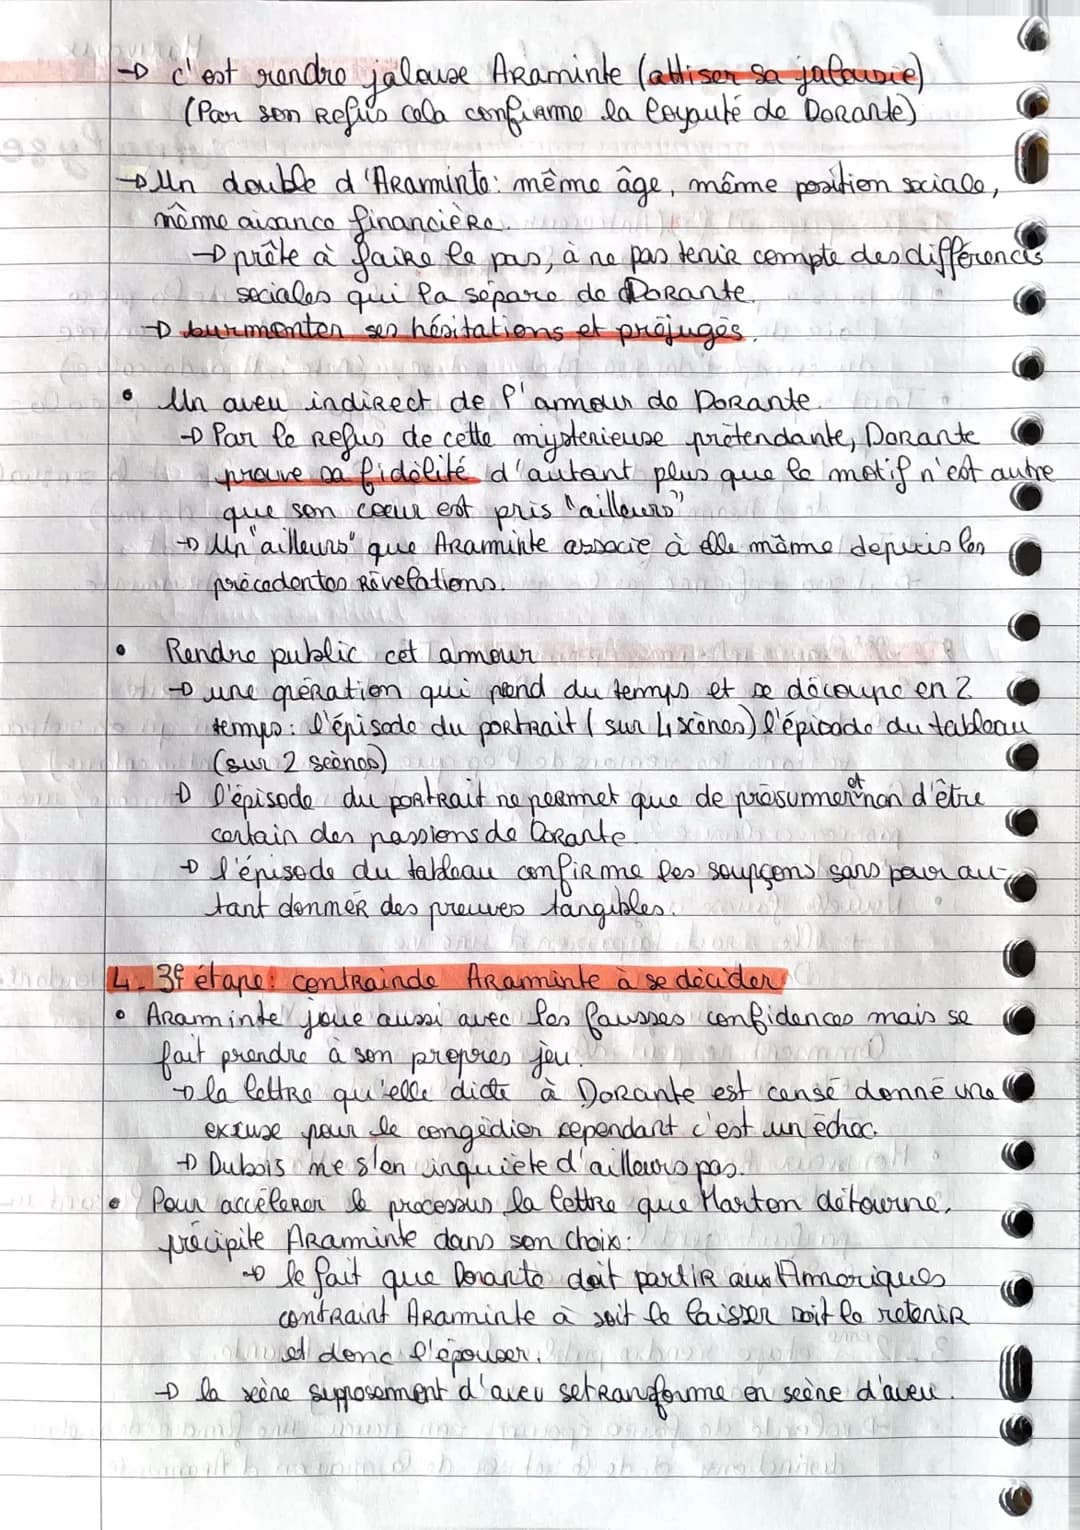 → c'est rendre jalouse Araminte (attiser sa jalousie)
(Par son Refus cela confirme la loyauté de Dorante)
→ Un double d'Araminte : même âge, même position sociale,
même aisance financière.
→ prête à faire le pas, à ne pas tenir compte des différences
sociales qui la sépare de Dorante.
→ surmonter ses hésitations et préjugés.
• Un aveu indirect de l'amour de Dorante.
→ Par le Refus de cette mystérieuse prétendante, Dorante
prouve sa fidélité d'autant plus que le motif n'est autre
que son coeur est pris "ailleurs"
→ Un "ailleurs" que Araminte associe à elle même depuis les
précédentes Révélations.
• Rendre public cet amour
→ une opération qui prend du temps et se découpe en 2
temps : l'épisode du portrait (sur 4 scènes) l'épisode du tableau
(sur 2 scènes)
→ l'épisode du portrait ne permet que de présumer et non d'être
certain des passions de Dorante.
→ l'épisode du tableau confirme les soupçons sans pour au-
tant donner des preuves tangibles.
4. 3e étape : contrainde Araminte à se décider
• Araminte joue aussi avec les fausses confidences mais se
fait prendre à son propres jeu.
→ la lettre qu'elle dicte à Dorante est censé donné une
excuse pour le congédier cependant c'est un échec.
→ Dubois ne s'en inquiète d'ailleurs pas.
• Pour accélérer le processus la lettre que Marton détourne,
précipite Araminte dans son choix :
→ le fait que Dorante doit partir aux Amériques
contraint Araminte à soit le laisser soit le retenir
et donc l'épouser.
→ la scène supposement d'aveu se transforme en scène d'aveu.